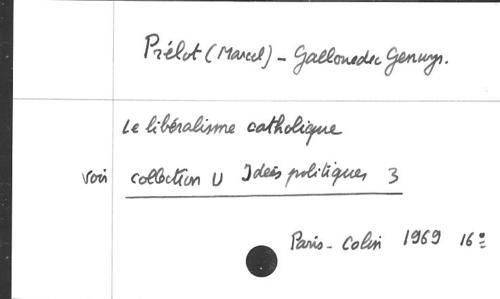 Prélot (Marcel) - Gallouedec Genuys.
Le libéralisme catholique
voir collection U Idées politiques 3
Paris - Colin 1969 16°